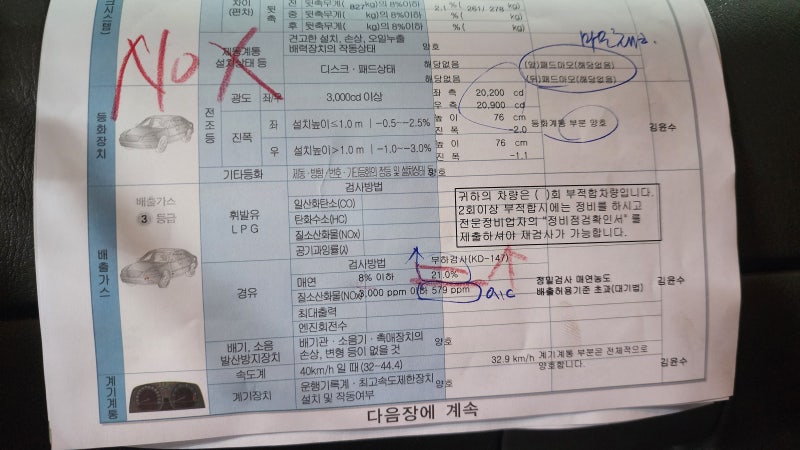 크시스템)
차이
(편차)
뒷
측
전 뒷축무게( 827kg)의 8%이하 2.1 % ( 261/ 278 kg)
중 뒷축무게( kg)의 8%이하 % ( kg)
후 뒷축무게( kg)의 8%이하 % ( kg)
제동계통
설치상태 등
견고한 설치, 손상, 오일누출
배력장치의 작동상태
양호
디스크ㆍ패드상태
해당없음
해당없음
(앞)패드마모(해당없음)
(뒤)패드마모(해당없음)
NOX
등화장치
전
조
등
광도 좌/우 3,000cd 이상
좌 측 20,200 cd
우 측 20,900 cd
진폭
좌 설치높이≤1.0 m -0.5~-2.5%
높 이 76 cm
진 폭 -2.0
우 설치높이>1.0 m -1.0~-3.0%
높 이 76 cm
진 폭 -1.1
등화계통 부분 양호
김윤수
기타등화
양호
배출가스
배출가스
3 등급
휘발유
LPG
검사방법
일산화탄소(CO)
탄화수소(HC)
질소산화물(NOx)
공기과잉률(λ)
귀하의 차량은 ( )회 부적합차량입니다.
2회이상 부적합시에는 정비를 하시고
전문정비업자의 "정비점검확인서" 를
제출하셔야 재검사가 가능합니다.
경유
검사방법 부하검사(KD-147)
매연 8% 이하 21.0%
질소산화물(NOx) 3,000 ppm 이하 579 ppm
최대출력
엔진회전수
정밀검사 매연농도
배출허용기준 초과(대기법)
김윤수
배기, 소음
발산방지장치
배기관ㆍ소음기ㆍ촉매장치의
손상, 변형 등이 없을 것
양호
계기계통
속도계 40km/h 일 때(32~44.4) 32.9 km/h
계기계통 부분은 전체적으로
양호합니다.
김윤수
계기장치
운행기록계ㆍ최고속도제한장치
설치 및 작동여부
양호
다음장에 계속